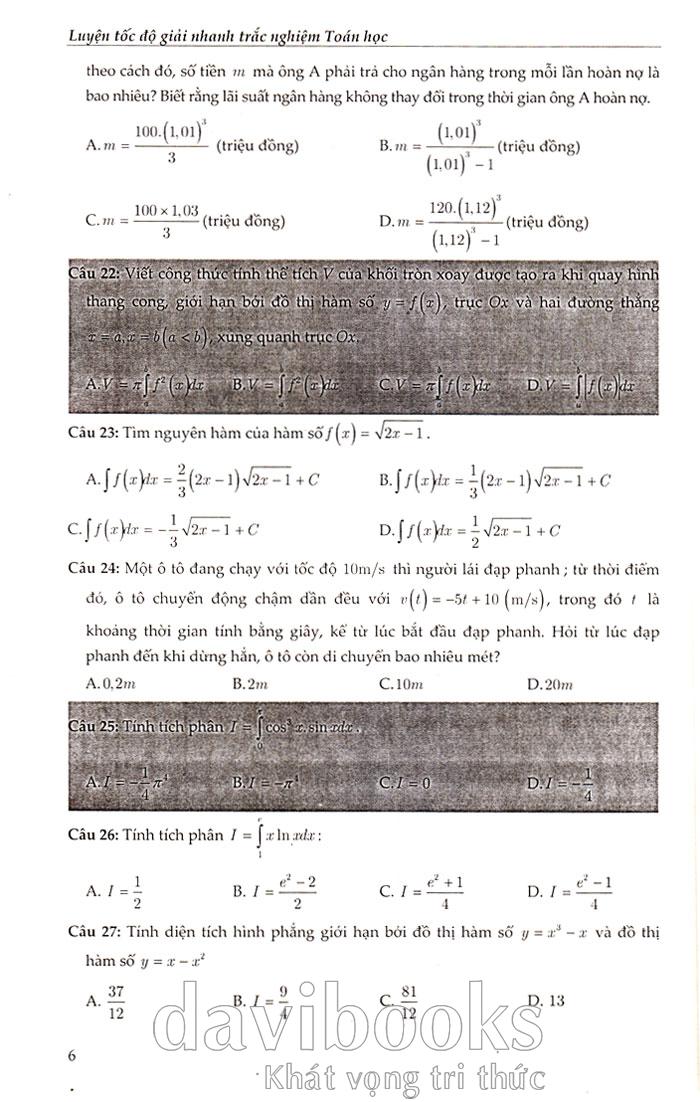 Luyện tốc độ giải nhanh trắc nghiệm Toán học
theo cách đó, số tiền m mà ông A phải trả cho ngân hàng trong mỗi lần hoàn nợ là
bao nhiêu? Biết rằng lãi suất ngân hàng không thay đổi trong thời gian ông A hoàn nợ.
A. m = \frac{100.(1,01)^3}{3} (triệu đồng) B. m = \frac{(1,01)^3}{(1,01)^3 - 1} (triệu đồng)
C. m = \frac{100 × 1,03}{3} (triệu đồng) D. m = \frac{120.(1,12)^3}{(1,12)^3 - 1} (triệu đồng)
Câu 22: Viết công thức tính thể tích V của khối tròn xoay được tạo ra khi quay hình
thang cong, giới hạn bởi đồ thị hàm số y = f(x), trục Ox và hai đường thẳng
x = a, x = b (a < b), xung quanh trục Ox.
A. V = π∫_a^b f²(x)dx B. V = ∫_a^b f²(x)dx C. V = π∫_a^b f(x)dx D. V = ∫_a^b |f(x)|dx
Câu 23: Tìm nguyên hàm của hàm số f(x) = √(2x − 1).
A. ∫f(x)dx = \frac{2}{3}(2x − 1)√(2x − 1) + C B. ∫f(x)dx = \frac{1}{3}(2x − 1)√(2x − 1) + C
C. ∫f(x)dx = −\frac{1}{3}√(2x − 1) + C D. ∫f(x)dx = \frac{1}{2}√(2x − 1) + C
Câu 24: Một ô tô đang chạy với tốc độ 10m/s thì người lái đạp phanh ; từ thời điểm
đó, ô tô chuyển động chậm dần đều với v(t) = −5t + 10 (m/s), trong đó t là
khoảng thời gian tính bằng giây, kể từ lúc bắt đầu đạp phanh. Hỏi từ lúc đạp
phanh đến khi dừng hẳn, ô tô còn di chuyển bao nhiêu mét?
A. 0,2m B. 2m C. 10m D. 20m
Câu 25: Tính tích phân I = ∫_0^π cos³ x. sin xdx .
A. I = −\frac{1}{4}π⁴ B. I = −π⁴ C. I = 0 D. I = −\frac{1}{4}
Câu 26: Tính tích phân I = ∫_1^e x ln xdx :
A. I = \frac{1}{2} B. I = \frac{e² − 2}{2} C. I = \frac{e² + 1}{4} D. I = \frac{e² − 1}{4}
Câu 27: Tính diện tích hình phẳng giới hạn bởi đồ thị hàm số y = x³ − x và đồ thị
hàm số y = x − x²
A. \frac{37}{12} B. I = \frac{9}{4} C. \frac{81}{12} D. 13
davibooks
6
Khát vọng tri thức